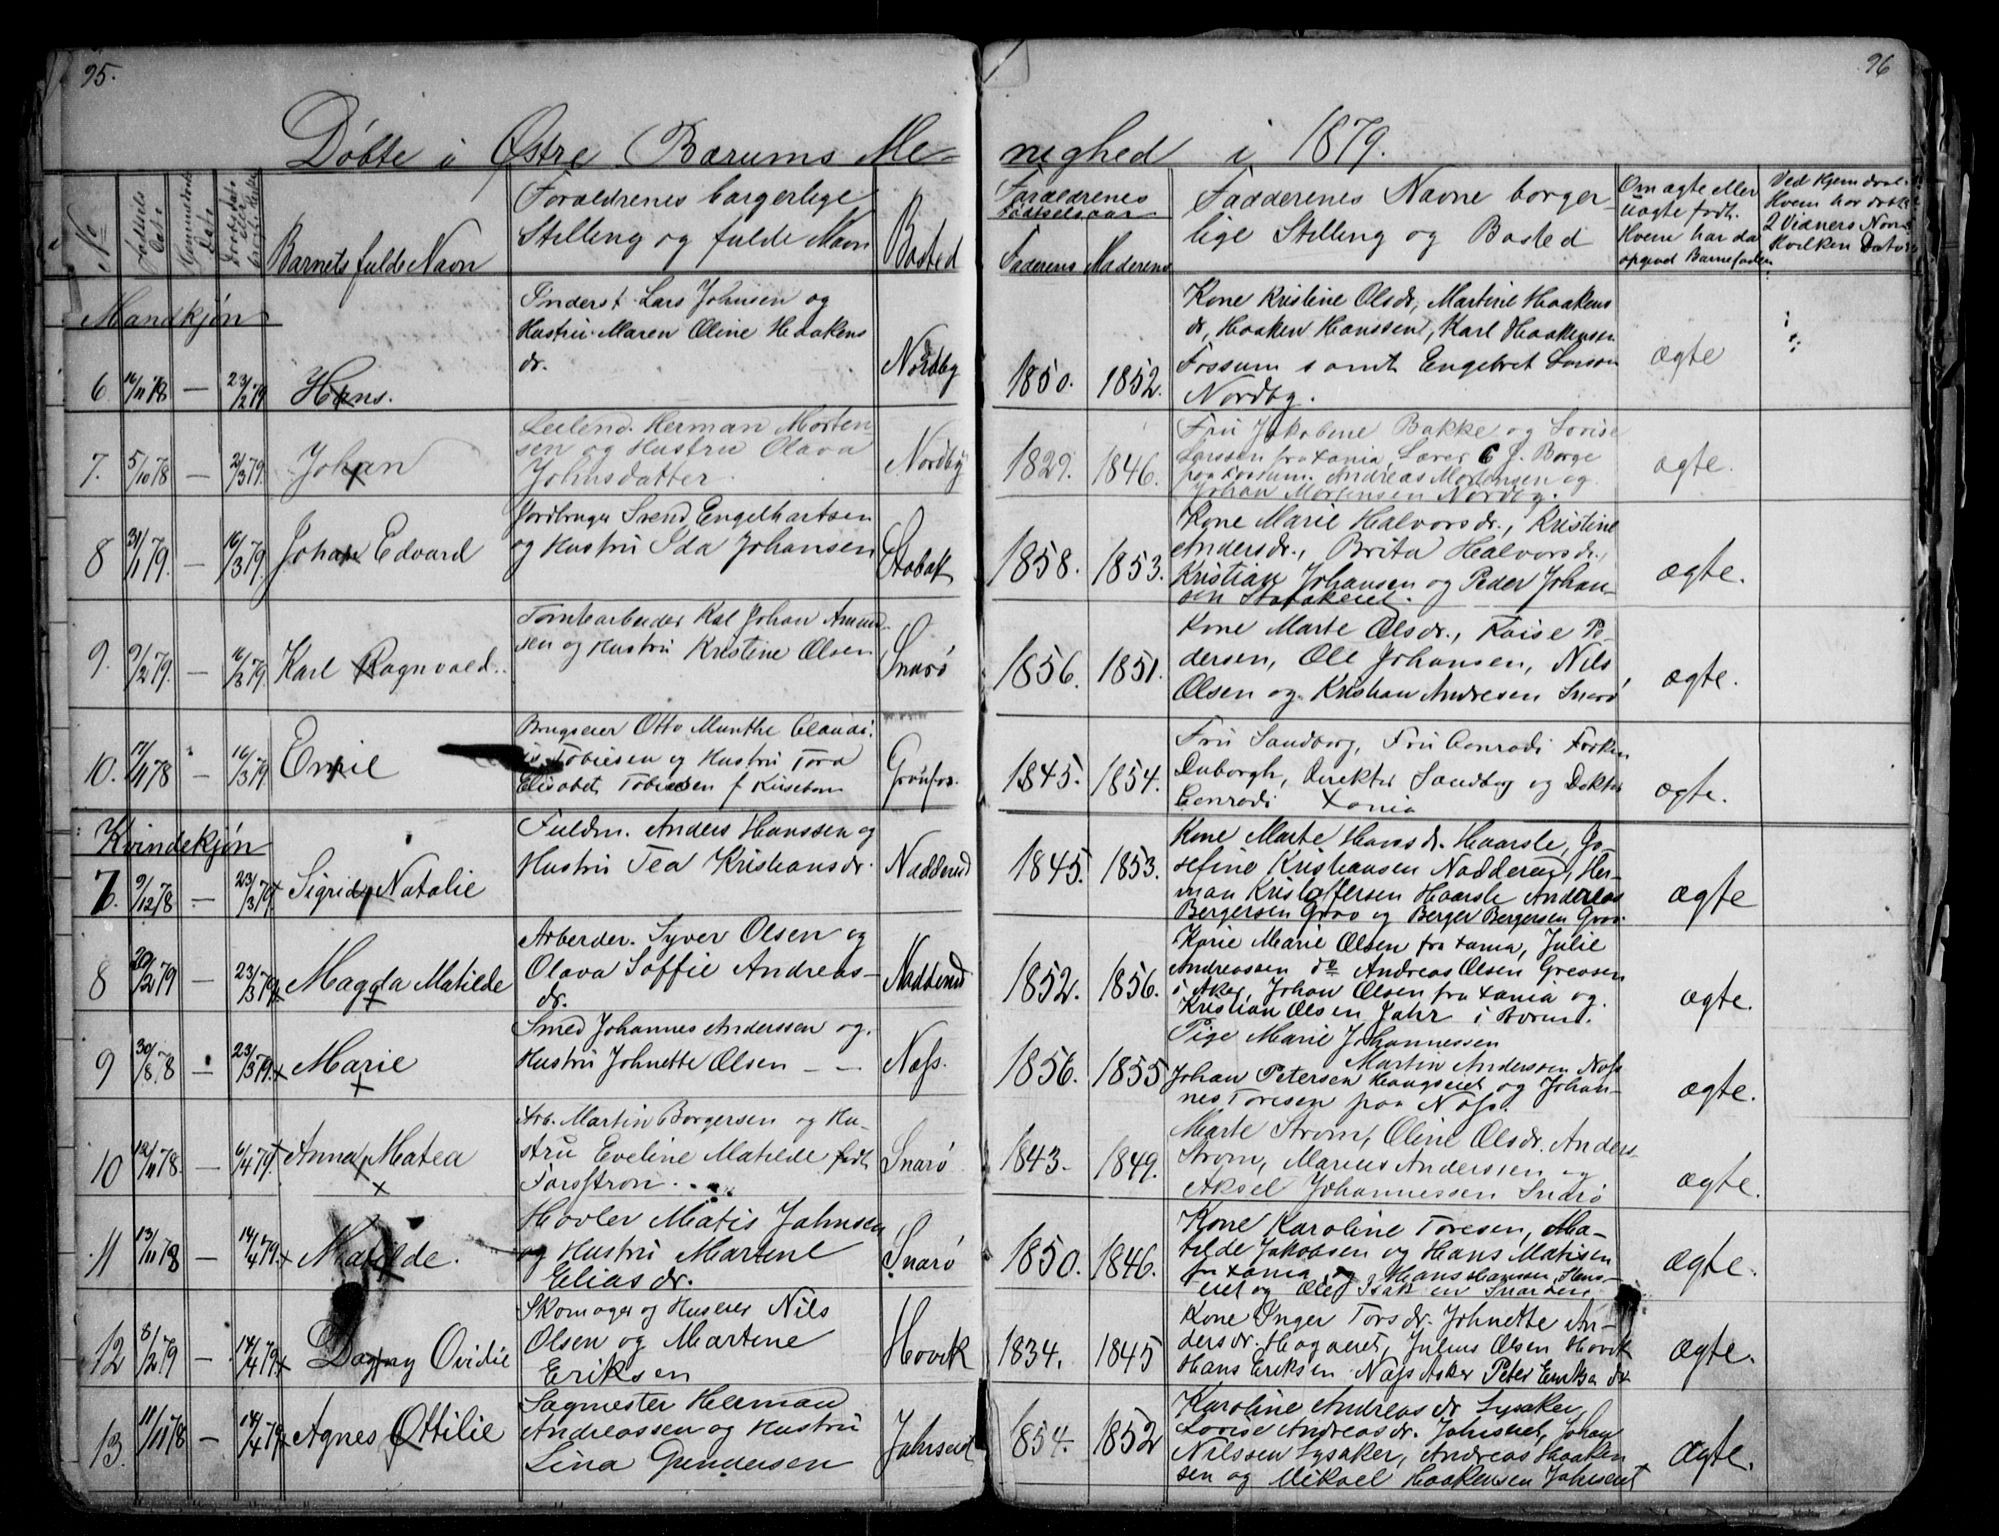 95.
96
Døbte i Østre Bærums Me-
nighed i 1879.
No
Fødsels Dato
Barnets fulde Navn
Forældrenes borgerlige
Stilling og fulde Navn
Bosted
Forældrenes
Fødselsaar
Faderens Moderens
Faddernes Navne borger-
lige Stilling og Bosted
Om ægte eller
uægte født.
Hvem har da
opgivet Barnefader
Ved Hjemdøbt
Hvem har døbt
2 Vidners Navne
Hvilken Dato
Mandkjøn
6 16/11 78 — 23/2 79 Hans.
Inderst. Lars Johnsen og
Hustru Maren Oline Haakens
dr.
Nordby
1850. 1852.
Kone Kristine Olsdr, Martine Haakens
dr, Haaken Hanssen, Karl Haakensen
Fossum samt Engebret Larsen
Nordby.
ægte
7. 5/10 78 — 2/3 79. Johan
Leilend. Herman Morten-
sen og Hustru Olava
Johnsdatter.
Nordby
1829. 1846.
Fru Jakobine Bakke og Lovise
Larssen fra Xania, Lærer C. J. Borge
paa Fossum. Andreas Mortensen og
Johan Mortensen Nordby.
ægte.
8 31/1 79. — 16/3 79. Johan Edvard
Jordbruger Svend Engelhartsen
og Hustru Ida Johansen
Stabæk
1858. 1853.
Kone Marie Halvorsdr., Kristine
Andersdr., Brita Halvorsdr.,
Kristian Johansen og Peder Johan-
sen Stabækeiet.
ægte.
9. 9/2 79. — 16/3 79. Karl Ragnvald.
Tomtearbeider Kal Johan Amund-
sen og Hustru Kristine Olsen
Snarø
1856. 1851.
Kone Marte Olsdr., Lovise Pe-
dersen, Ole Johansen, Nils
Olsen og Kristian Andresen Snarø
ægte.
10. 17/11 78 — 16/3 79 Emil
Brugseier Otto Munthe Claudi-
us Tobiesen og Hustru Tora
Elisabet Tobiesen f
Grønfos.
1845. 1854.
Fru Sandborg, Fru Conradi Frøken
Duborgh, Direktør Sandborg og Doktor
Conradi Xania
ægte.
Kvindekjøn
7. 9/12 78 — 23/3 79. Sigrid Natalie
Fuldm. Anders Hanssen og
Hustru Tea Kristiansdr.
Nadderud
1845. 1853.
Kone Marte Hansdr. Haarsle, Jo-
sefine Kristiansen Nadderud, Her-
man Kristoffersen Haarsle Andreas
Bergersen Grav og Berger Bergersen Grav.
ægte
8 20/2 79 — 23/3 79 Magda Matilde
Arbeider. Syver Olsen og
Olava Soffie Andreas-
dr.
Nadderud
1852. 1856.
Kone Marie Olsen fra Xania, Julie
Andreassen do Andreas Olsen
i Aker, Johan Olsen fra Xania og
Kristian Olsen Jahr i Bærum.
ægte.
9 30/8 78 — 23/3 79. Marie
Smed Johannes Anderssen og
Hustru Johnette Olsen — —
Næss.
1856. 1855
Pige Marie Johannessen
Martin Anderssen Næss
Johan Petersen Haugseiet og Johan-
nes Toresen paa Næss.
ægte.
10 12/11 78. — 6/4 79 Anna Matea
Arb. Martin Borgersen og Hu-
stru Eveline Matilde født
Forsstrøm.
Snarø
1843. 1849.
Marte Strøm, Oline Olsdr. Anders
Strøm, Marius Anderssen og
Aksel Johannessen Snarø
ægte.
11 13/11 78 — 14/4 79. Matilde.
Høvler Matis Johnsen
og Hustru Martine
Eliasdr.
Snarø
1850. 1846.
Kone Karoline Toresen, Ma-
tilde Jakobsen og Hans Matisen
fra Xania og Hans Hanssen,
eiet og Ole Isaksen Snarøen.
ægte.
12 8/2 79 — 14/4 79. Dagny Ovidie
Skomager og Huseier Nils
Olsen og Martine
Eriksen
Høvik
1834. 1845
Kone Inger Torsdr. Johnette An-
dersdr. Høgneiet, Julius Olsen Høvik
Hans Eriksen Næss Asker Peter Eriksen do
ægte.
13. 11/11 78 — 14/4 79 Agnes Ottilie
Sagmester Herman
Andreassen og Hustru
Lina Gundersen
Jahrseiet
1854. 1852
Karoline Andreasdr Lysaker,
Lovise Andreasdr. Jahrseiet, Johan
Nilssen Lysaker, Andreas Haaken
sen og Mikael Haakensen Jahrseiet
ægte.